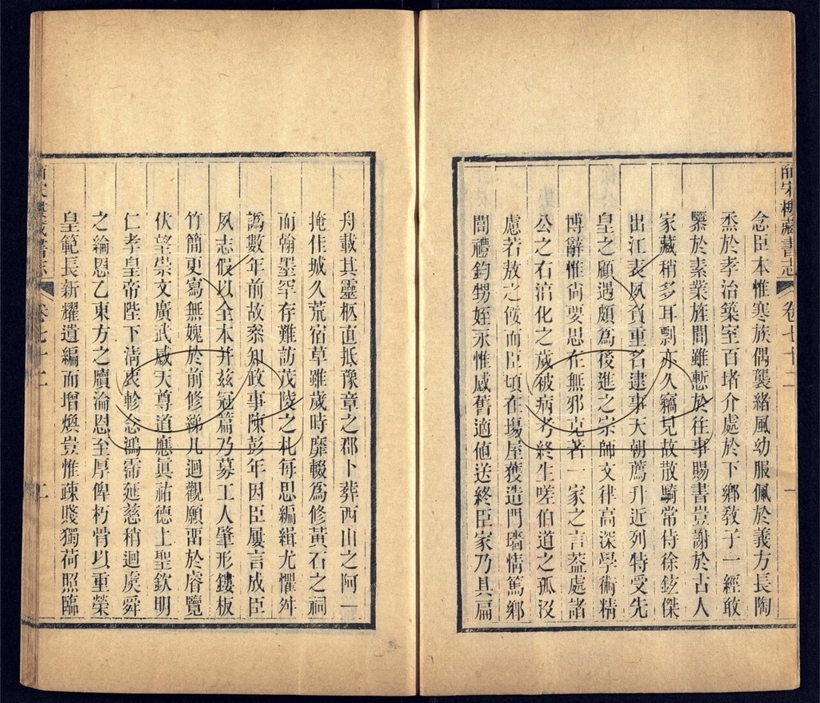 皕宋樓藏書志 卷七十二 一
念臣本惟寒族偶襲緒風幼服佩於義方長陶
烝於孝治築室百堵介處於下鄉敎子一經敢
隳於素業旌閭雖慙於往事賜書豈謝於古人
家藏稍多耳剽亦久竊見故散騎常侍徐鉉傑
出江表夙負重名逮事天朝薦升近列特受先
皇之顧遇頗為後進之宗師文律高深學術精
博辭惟尚要思在無邪克著一家之言蓋處諸
公之右淯化之歲被病考終生嗟伯道之孤沒
慮若敖之餒而臣頃在場屋獲造門墻情篤鄉
閭禮鈞甥姪永惟感舊適値送終臣家乃具扁
舟載其靈柩直抵豫章之郡卜葬西山之阿一
掩佳城久荒宿草雖歲時靡輟為修黃石之祠
而翰墨罕存難訪茂陵之札每思編緝尤懼舛
譌數年前故叅知政事陳彭年因臣屢言成臣
夙志假以全本并茲冠篇乃募工人肇形鏤板
竹簡更寫無媿於前修綈几迴觀願畱於睿覽
伏望崇文廣武感天尊道應眞祐德上聖欽明
仁孝皇帝陛下清衷軫念鴻霈延慈稍迴虞舜
之綸恩乙東方之牘淪恩至厚俾朽骨以重榮
皇範長新耀遺編而增煥豈惟疎賤獨荷照臨
皕宋樓藏書志 卷七十二 二